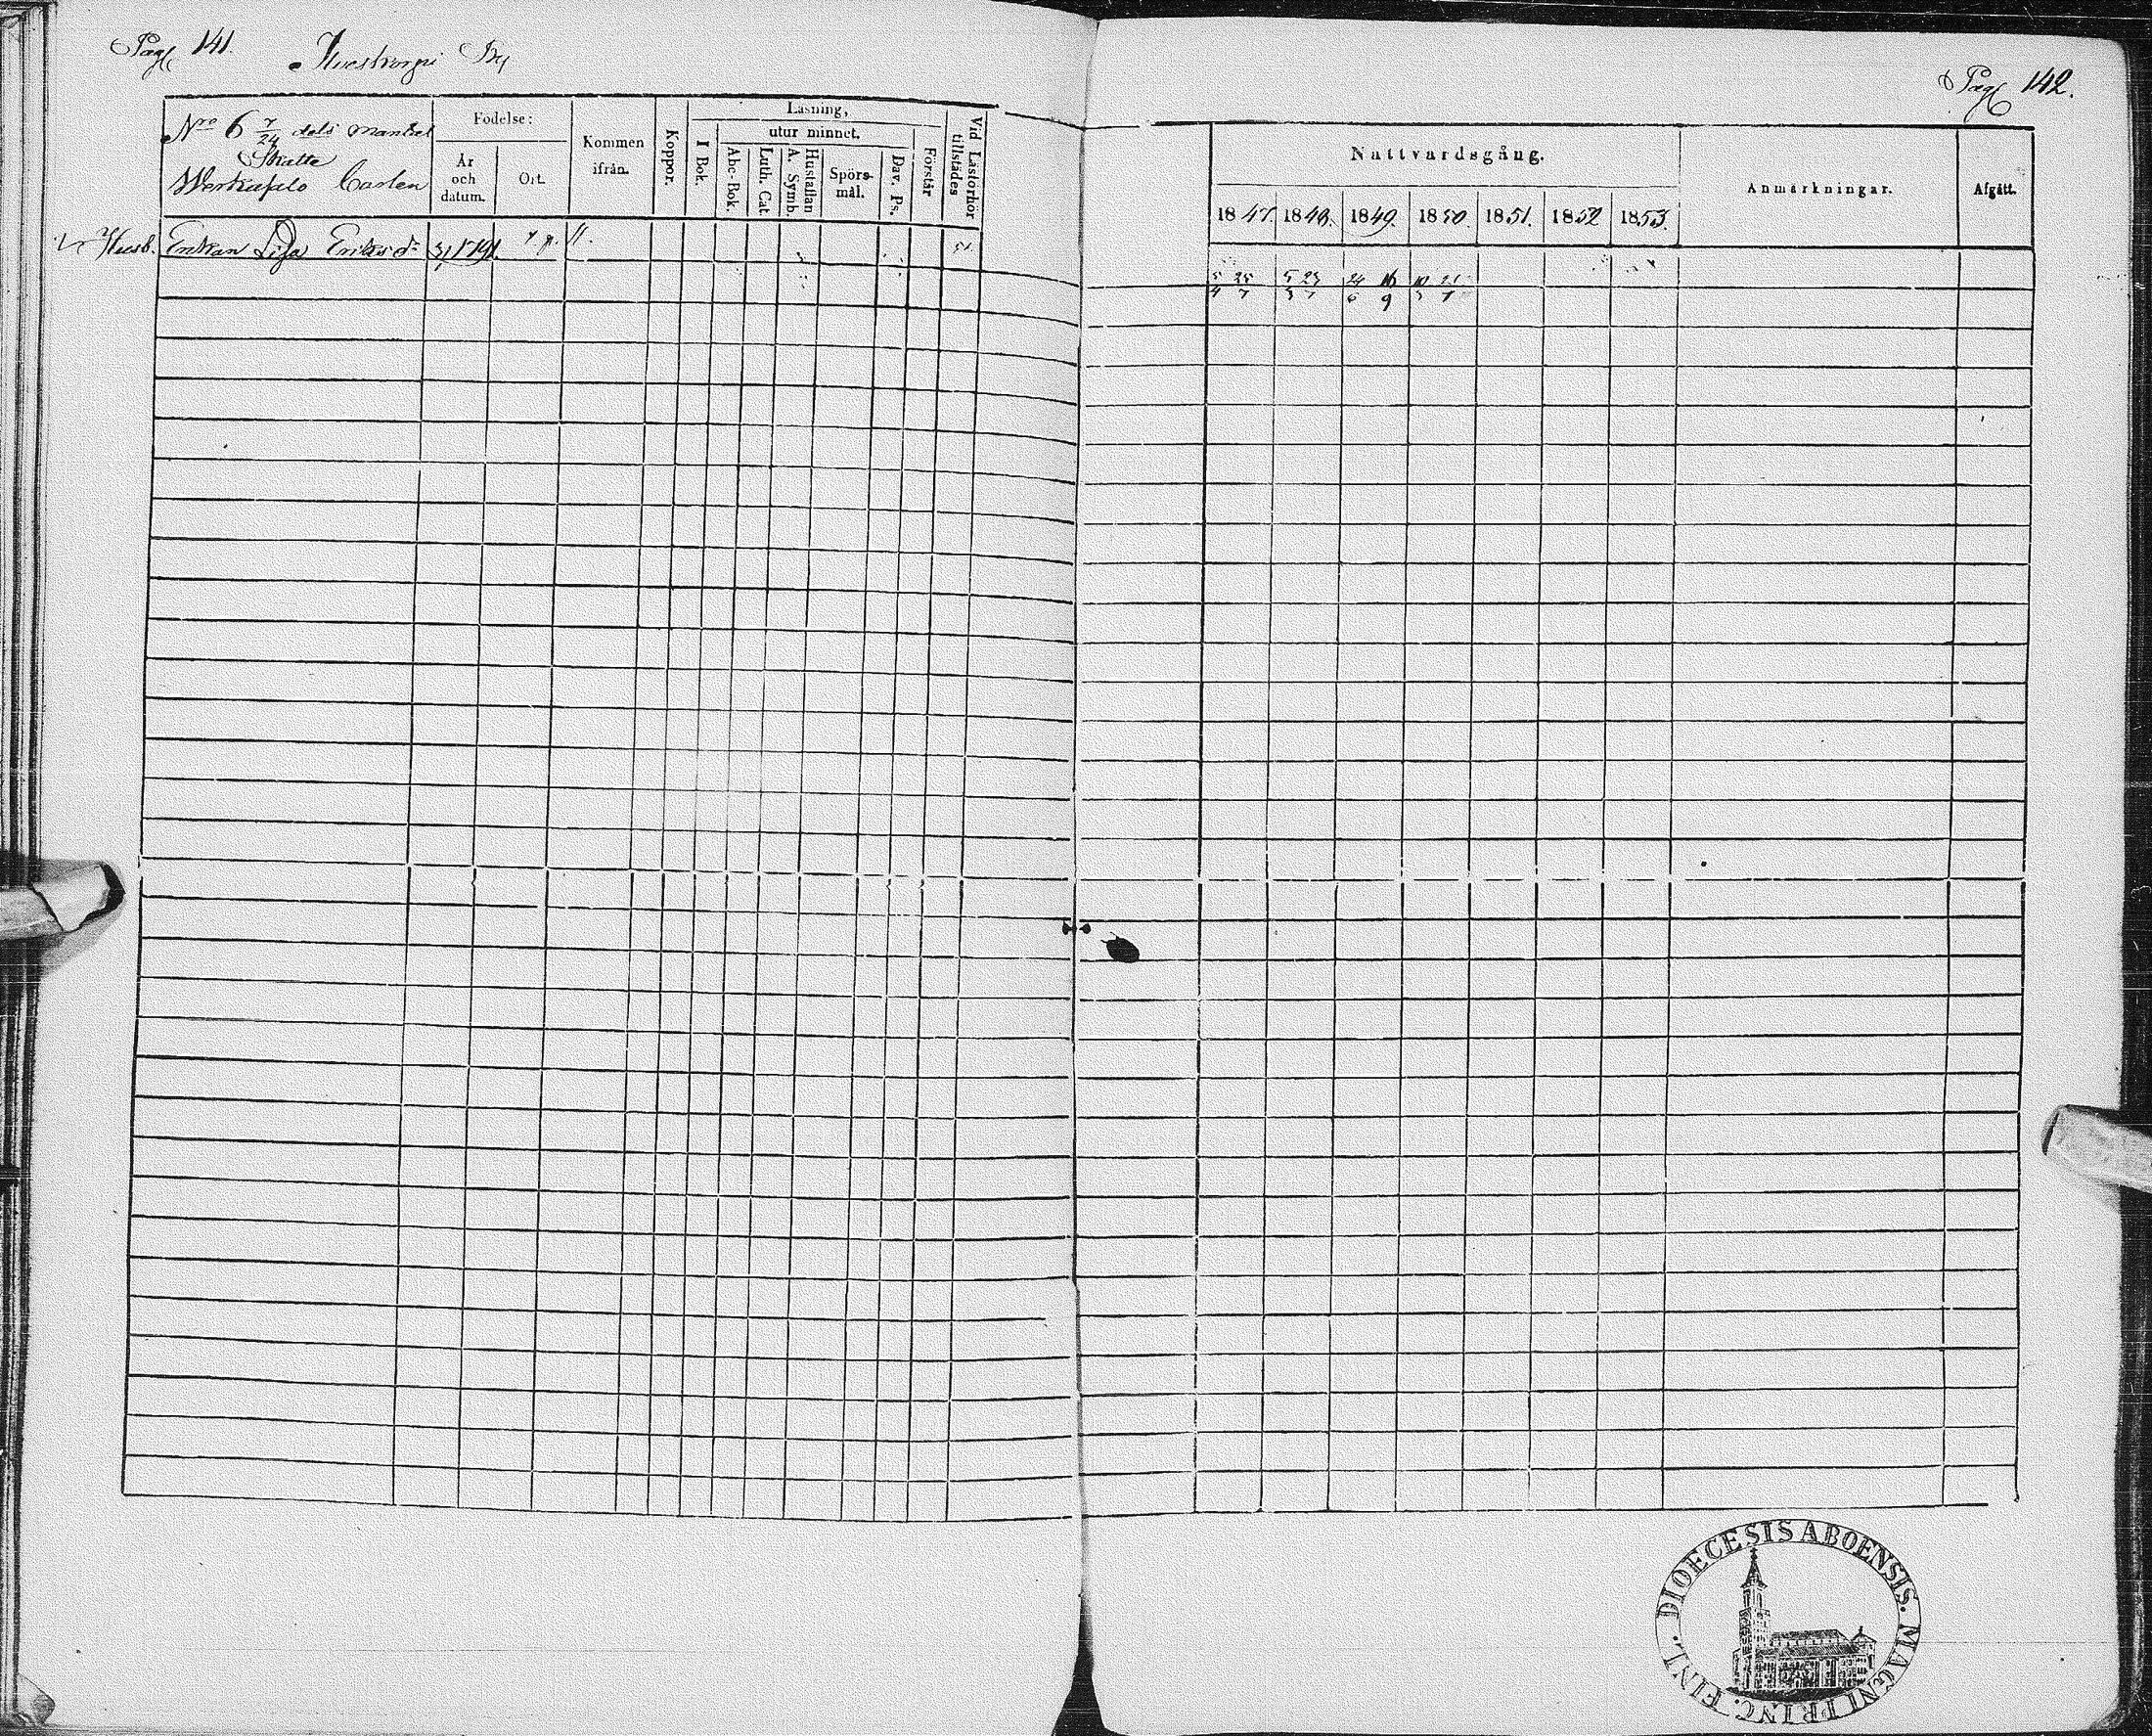 Pag 141.
By
Nro 6 7/24 dels mantal
Skatte
Födelse:
År och datum.
Ort.
Kommen ifrån.
Koppor.
Läsning,
I Bok.
utur minnet.
Abc-Bok.
Luth. Cat.
A. Symb.
Hustaflan
Spörs-mål.
Dav. Ps.
Förstår
Vid Läsförhör tillstädes
Enkan Lisa Eriksdr 1791.
Pag 142.
Nattvardsgång.
1847. 1848. 1849. 1850. 1851. 1852 1853.
Anmärkningar.
Afgått.
5/4 25/7 5/3 23/7 24/6 16/9 10/3 21/7
DIOECESIS ABOENSIS. MAGNI PRINC. FINL.